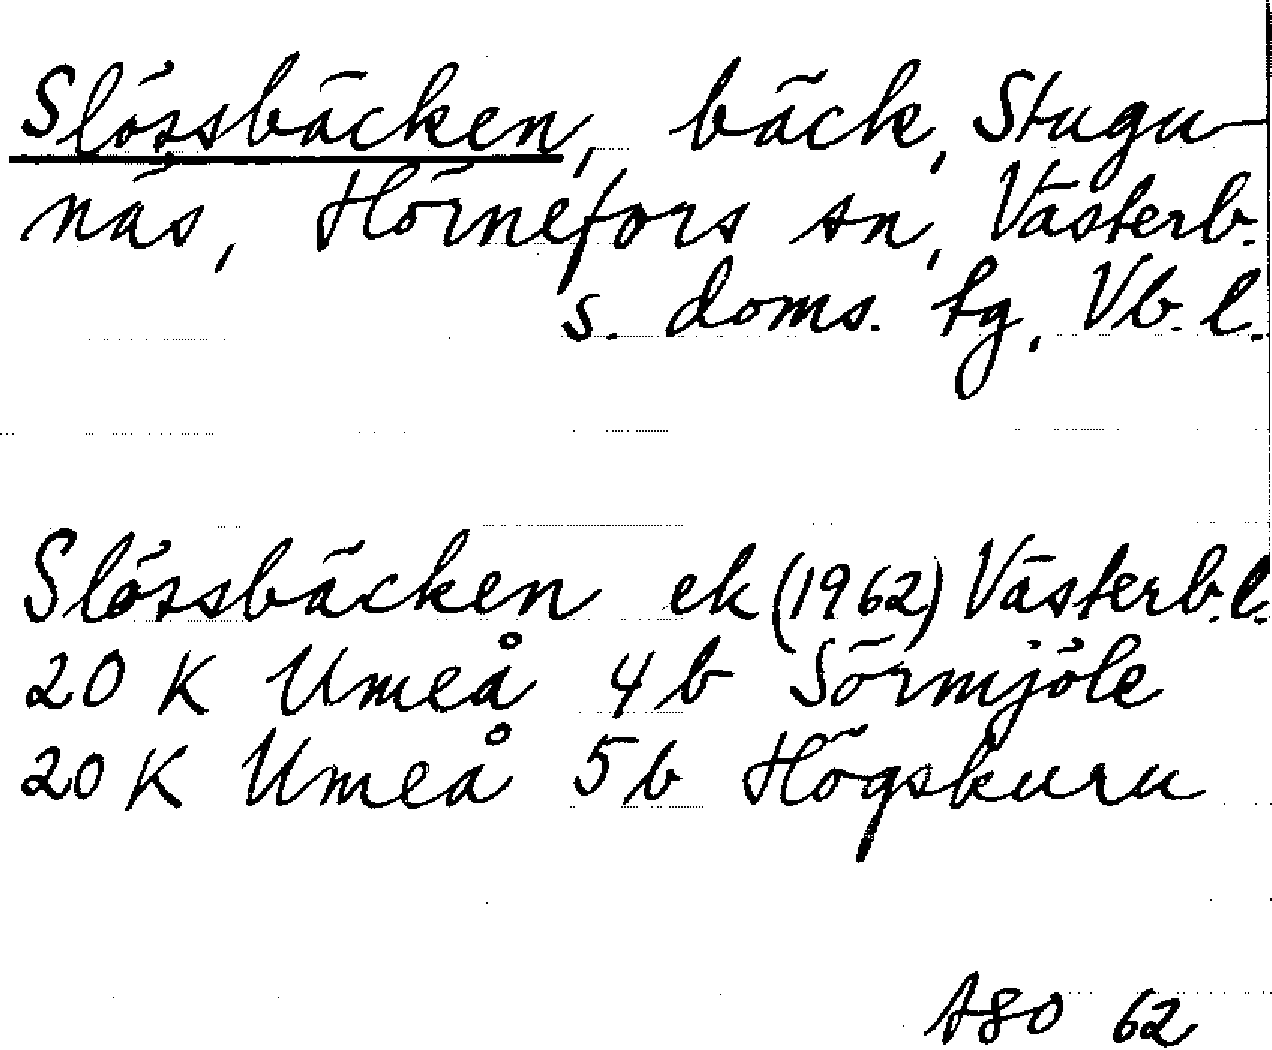 Slössbäcken, bäck, Stugu-
näs, Hörnefors sn, Västerb.
s. doms. tg, Vb. l.
Slössbäcken ek (1962) Västerb. l.
20 K Umeå 4b Sörmjöle
20 K Umeå 5b Högskuru
ASO 62